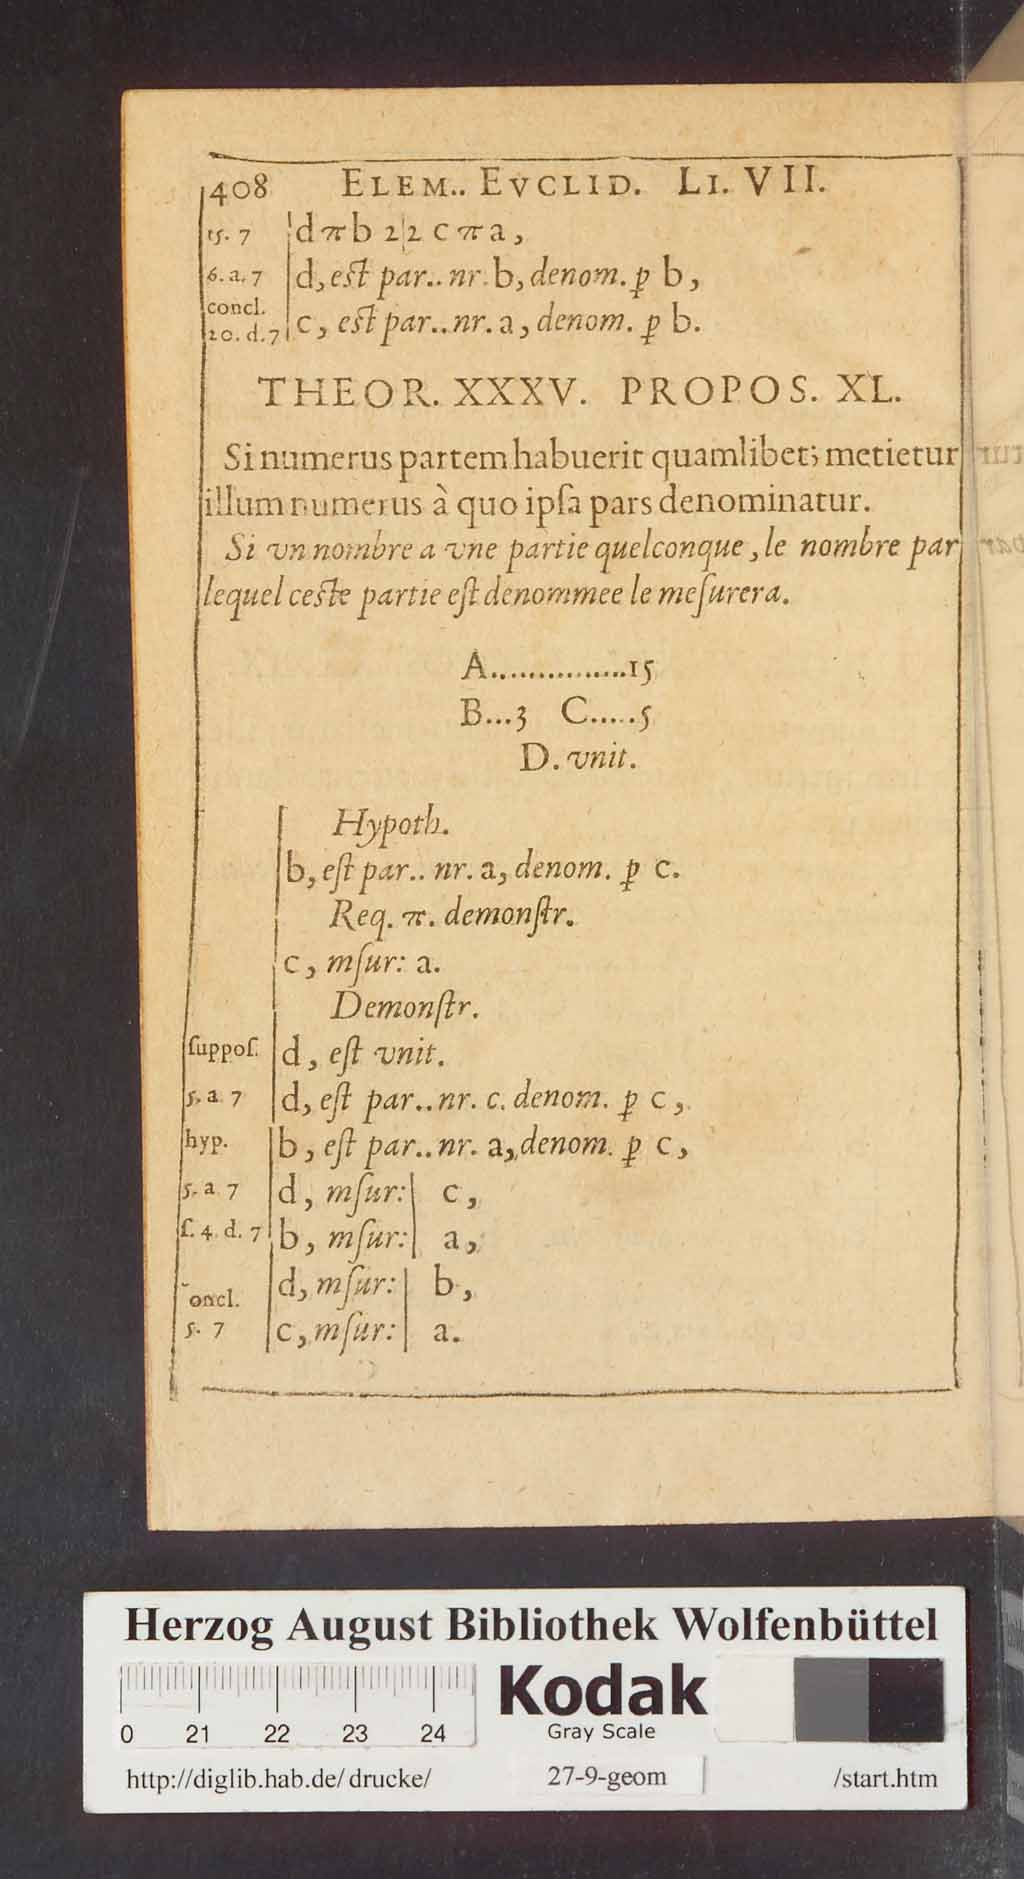 408 ELEM.. EVCLID. LI. VII.
15. 7 dπb 2|2 c π a,
6. a. 7 d, eſt par.. nr. b, denom. ꝑ b,
concl.
20. d. 7 c, eſt par.. nr. a, denom. ꝑ b.
THEOR. XXXV. PROPOS. XL.
Si numerus partem habuerit quamlibet; metietur
illum numerus à quo ipſa pars denominatur.
Si vn nombre a vne partie quelconque, le nombre par
lequel ceſte partie eſt denommee le meſurera.
A...............15
B...3 C.....5
D. vnit.
Hypoth.
b, eſt par.. nr. a, denom. ꝑ c.
Req. π. demonſtr.
c, mſur: a.
Demonſtr.
ſuppoſ. d, eſt vnit.
5. a. 7 d, eſt par.. nr. c. denom. ꝑ c,
hyp. b, eſt par.. nr. a, denom. ꝑ c,
5. a. 7 d, mſur: | c,
ſ. 4. d. 7 b, mſur: | a,
d, mſur: | b,
oncl.
5. 7 c, mſur: | a.
Herzog August Bibliothek Wolfenbüttel
Kodak
Gray Scale
0 21 22 23 24
http://diglib.hab.de/drucke/ 27-9-geom /start.htm